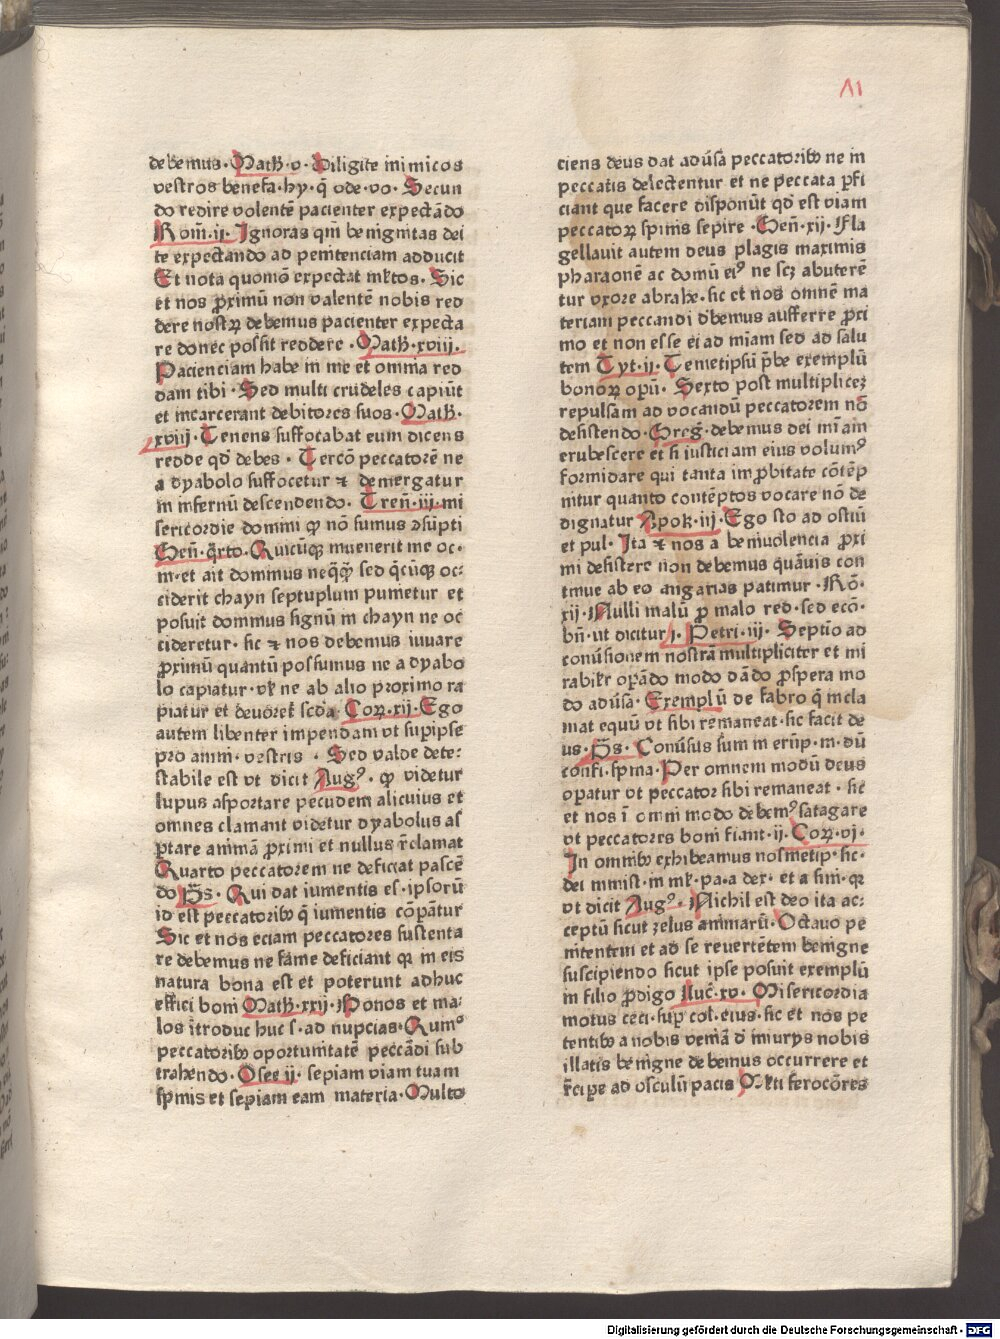 Λı
debemus·Math̄·v·Diligite inimicos
vestros benefa·hy·q̄ ode·vo·Secun
do redire volentē pacienter expectādo
Rom̄·ij·Ignoras qm̄ benignitas dei
te expectando ad penitenciam adducit
Et nota quomō expectat m̄ltos·Sic
et nos ꝓximū non valentē nobis red
dere nostꝝ debemus pacienter expecta
re donec possit reddere·Math̄·xviij.
Pacienciam habe in me et omnia red
dam tibi·Sed multi crudeles capiūt
et incarcerant debitores suos·Math̄·
xviij·Tenens suffocabat eum dicens
redde qd̄ debes·Tercō peccatorē ne
a dyabolo suffocetur ⁊ demergatur
in infernū descendendo·Tren̄·iij·mi
sericordie domini ꝙ nō sumus ꝯsūpti
Gen̄·q̄rto·Quicūqꝫ inuenerit me oc·
m·et ait dominus neq̄q̄ꝫ sed q̄cūqꝫ oc:
ciderit chayn septuplum punietur et
posuit dominus signū in chayn ne oc
cideretur·sic ⁊ nos debemus iuuare
ꝓximū quantū possumus ne a dyabo
lo capiatur·vl̄ ne ab alio proximo ra
piatur et deuoret̄ scda Coꝝ·xij·Ego
autem libenter impendam vt suꝑipse
pro anim̄·vestris·Sed valde dete:
stabile est vt dicit Augꝰ·ꝙ videtur
lupus asportare pecudem alicuius et
omnes clamant videtur dyabolus as
ꝑtare animā ꝓximi et nullus r̄clamat
Quarto peccatorem ne deficiat pascē
do p̄s·Qui dat iumentis es·ipsorū
id est peccatoribꝫ q̄ iumentis cōpātur
Sic et nos eciam peccatores sustenta
re debemus ne fame deficiant qꝛ in eis
natura bona est et poterunt adhuc
effici boni Math̄·xxij·Bonos et ma·
los ītroduc huc s·ad nupcias·Qumꝰ
peccatoribꝫ oportunitatē peccādi sub
trahendo·Osee ij·sepiam viam tuam
spinis et sepiam eam materia·Multo
ciens deus dat adūsa peccatoribꝫ ne in
peccatis delectentur et ne peccata ꝑfi
ciant que facere disponūt qd̄ est viam
peccatoꝝ spinis sepire·Gen̄·xij·Fla
gellauit autem deus plagis maximis
pharaonē ac domū eiꝰ ne scꝫ abuterē
tur vxore abrahe·sic et nos omnē ma
teriam peccandi d̄bemus aufferre ꝓxi
mo et non esse ei ad mīam sed ad salu
tem Tyt·ij·Temetipsū p̄be exemplū
bonoꝝ opū·Sexto post multiplicez
repulsam ad vocandū peccatorem nō
desistendo·Greḡ·debemus dei mīam
erubescere et si iusticiam eius volumꝰ
formidare qui tanta imꝓbitate cōtēp
nitur quanto contēptos vocare nō de
dignatur Apok·iij·Ego sto ad ostiū
et pul·Ita ⁊ nos a beniuolencia ꝓxi
mi desistere non debemus quāuis con
tinue ab eo angarias patimur·Rō·
xij·Nulli malū ꝓ malo red·sed ecō·
bn̄·vt dicitur j·Petri·iij·Septīo ad
conūsionem nostrā multipliciter et mi
rabilr̄ opādo modo dādo ꝓspera mo
do adūsa·Exemplū de fabro q̄ incla
mat equū vt sibi remaneat·sic facit de
us·p̄s·Conūsus sum in erūp·m·dū
confi·spina·Per omnem modū deus
opatur vt peccator sibi remaneat·sic
et nos ī omni modo debemꝰ satagare
vt peccatores boni fiant·ij·Coꝝ·vj·
In omnibꝫ exhibeamus nosmetip·sic·
dei minist·in ml̄·pa·a dex·et a sin̄·qꝛ
vt dicit Augꝰ·Nichil est deo ita ac:
ceptū sicut zelus animarū·Octauo pe
nitentem et ad se reuertētem benigne
suscipiendo sicut ipse posuit exemplū
in filio ꝓdigo Luc̄·xv·Misericordia
motus ceci·suꝑ col̄·eius·sic et nos pe
tentibꝫ a nobis veniā d̄ iniurys nobis
illatis benigne debemus occurrere et
r̄cipe ad osculū pacis M̄lti ferocōres
Digitalisierung gefördert durch die Deutsche Forschungsgemeinschaft · DFG